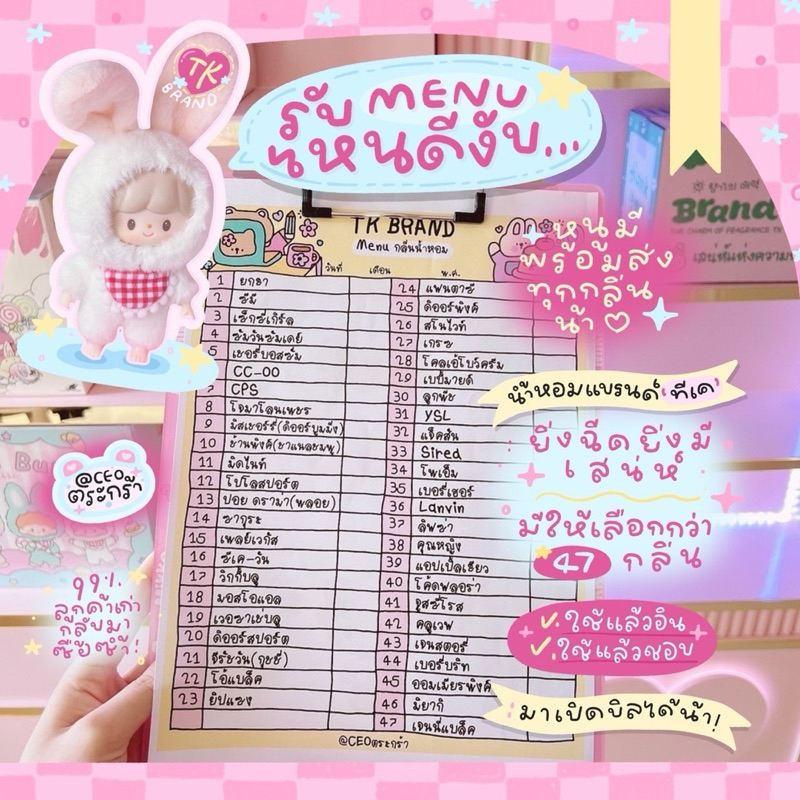 TK
BRAND
รับ MENU
ไหนดีงับ...
TK BRAND
Menu กลิ่นน้ำหอม
วันที่ เดือน พ.ศ.
1 ยกษา
2 ซมี
3 เซ็กซี่เกิร์ล
4 ซัมวันซัมเดย์
5 เชอรี่บอสซั่ม
6 CC-00
7 CPS
8 โจมาโลนเพชร
9 มิสเชอร์รี่(ดิออร์บูมมิ่ง)
10 บ้านพิงค์(ชาแนลชมพู)
11 มิดไนท์
12 โปโลสปอร์ต
13 ปอย ดรามา(พลอย)
14 ซากุระ
15 เพลย์เวกัส
16 ซีเค-วัน
17 วิกกี้บลู
18 มอสโอแอล
19 เวอซาเช่บลู
20 ดิออร์สปอร์ต
21 จีรีย์วัน(กุชชี่)
22 โอ้แบล็ค
23 ยิปแซง
24 แฟนตาซี
25 ดิออร์พิงค์
26 สโนไวท์
27 เกรซ
28 โคลเอ้โบว์ครีม
29 เบบี้มายด์
30 ลูกพีช
31 YSL
32 แจ็คสัน
33 Sired
34 โพเอ็ม
35 เบอรี่เชอร์
36 Lanvin
37 ลิพซา
38 คุณหญิง
39 แอปเปิ้ลเขียว
40 โค้ดฟลอร่า
41 จูสซี่โรส
42 คลูเวฟ
43 เจนสตอรี่
44 เบอรี่บรัท
45 ออมเมียรพิงค์
46 มิยากิ
47 เจนนี่แบล็ค
@CEOตระกร้า
หนูมี
พร้อมส่ง
ทุกกลิ่น
น้า
Brand
THE CHARM OF FRAGRANCE TK
น้ำหอมแบรนด์'ทีเค'
ยิ่งฉีดยิ่งมี
เสน่ห์
มีให้เลือกกว่า
47 กลิ่น
ใช้แล้วอิน
ใช้แล้วชอบ
มาเปิดบิลได้น้า!
@CEO
ตระกร้า
99%
ลูกค้าเก่า
กลับมา
ซื้อซ้ำ!